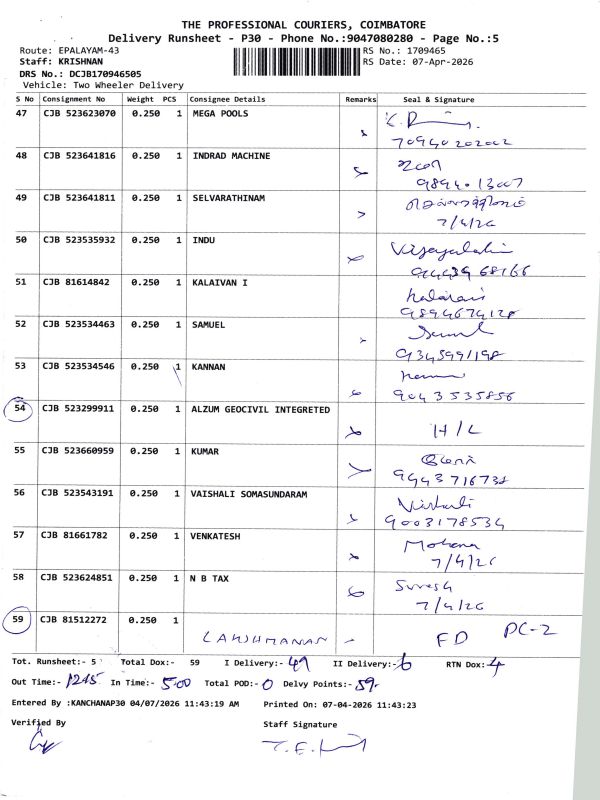 THE PROFESSIONAL COURIERS, COIMBATORE
Delivery Runsheet - P30 - Phone No.:9047080280 - Page No.:5
Route: EPALAYAM-43
RS No.: 1709465
Staff: KRISHNAN
RS Date: 07-Apr-2026
DRS No.: DCJB170946505
Vehicle: Two Wheeler Delivery
S No Consignment No Weight PCS Consignee Details Remarks Seal & Signature
47 CJB 523623070 0.250 1 MEGA POOLS
48 CJB 523641816 0.250 1 INDRAD MACHINE
49 CJB 523641811 0.250 1 SELVARATHINAM
7/4/26
50 CJB 523535932 0.250 1 INDU
51 CJB 81614842 0.250 1 KALAIVAN I
9894674128
52 CJB 523534463 0.250 1 SAMUEL
9345991198
53 CJB 523534546 0.250 1 KANNAN
9043535856
54 CJB 523299911 0.250 1 ALZUM GEOCIVIL INTEGRETED H/L
55 CJB 523660959 0.250 1 KUMAR
9443716738
56 CJB 523543191 0.250 1 VAISHALI SOMASUNDARAM
9003178534
57 CJB 81661782 0.250 1 VENKATESH Mohana
7/4/26
58 CJB 523624851 0.250 1 N B TAX Suresh
7/4/26
59 CJB 81512272 0.250 1
LAKSHMANAN - FD DC-2
Tot. Runsheet:- 5 Total Dox:- 59 I Delivery:- 49 II Delivery:- 6 RTN Dox:- 4
Out Time:- 1215 In Time:- 5.00 Total POD:- 0 Delvy Points:- 59
Entered By :KANCHANAP30 04/07/2026 11:43:19 AM Printed On: 07-04-2026 11:43:23
Verified By Staff Signature